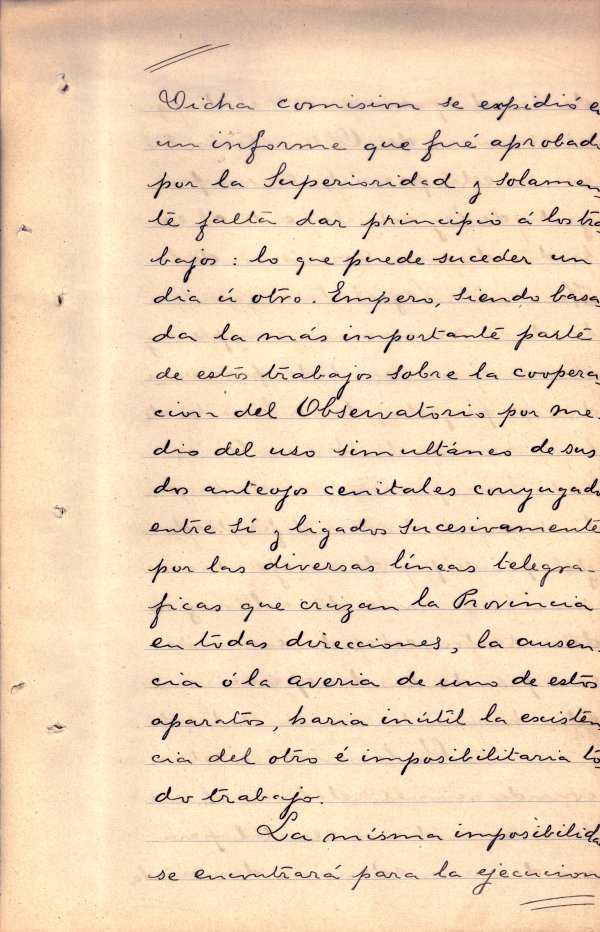 Dicha comision se expidió e
un informe que fué aprobad
por la Superioridad y solamen-
te falta dar principio á los tra
bajos: lo que puede suceder un
dia ú otro. Empero, siendo basa
da la más importante parte
de estos trabajos sobre la coopera-
cion del Observatorio por me-
dio del uso simultáneo de sus
dos anteojos cenitales conjugado
entre sí y ligados sucesivamente
por las diversas líneas telegra-
ficas que cruzan la Provincia
en todas direcciones, la ausen-
cia ó la averia de uno de estos
aparatos, haria inútil la existen
cia del otro é imposibilitaria to-
do trabajo.
La misma imposibilida
se encontrará para la ejecucion